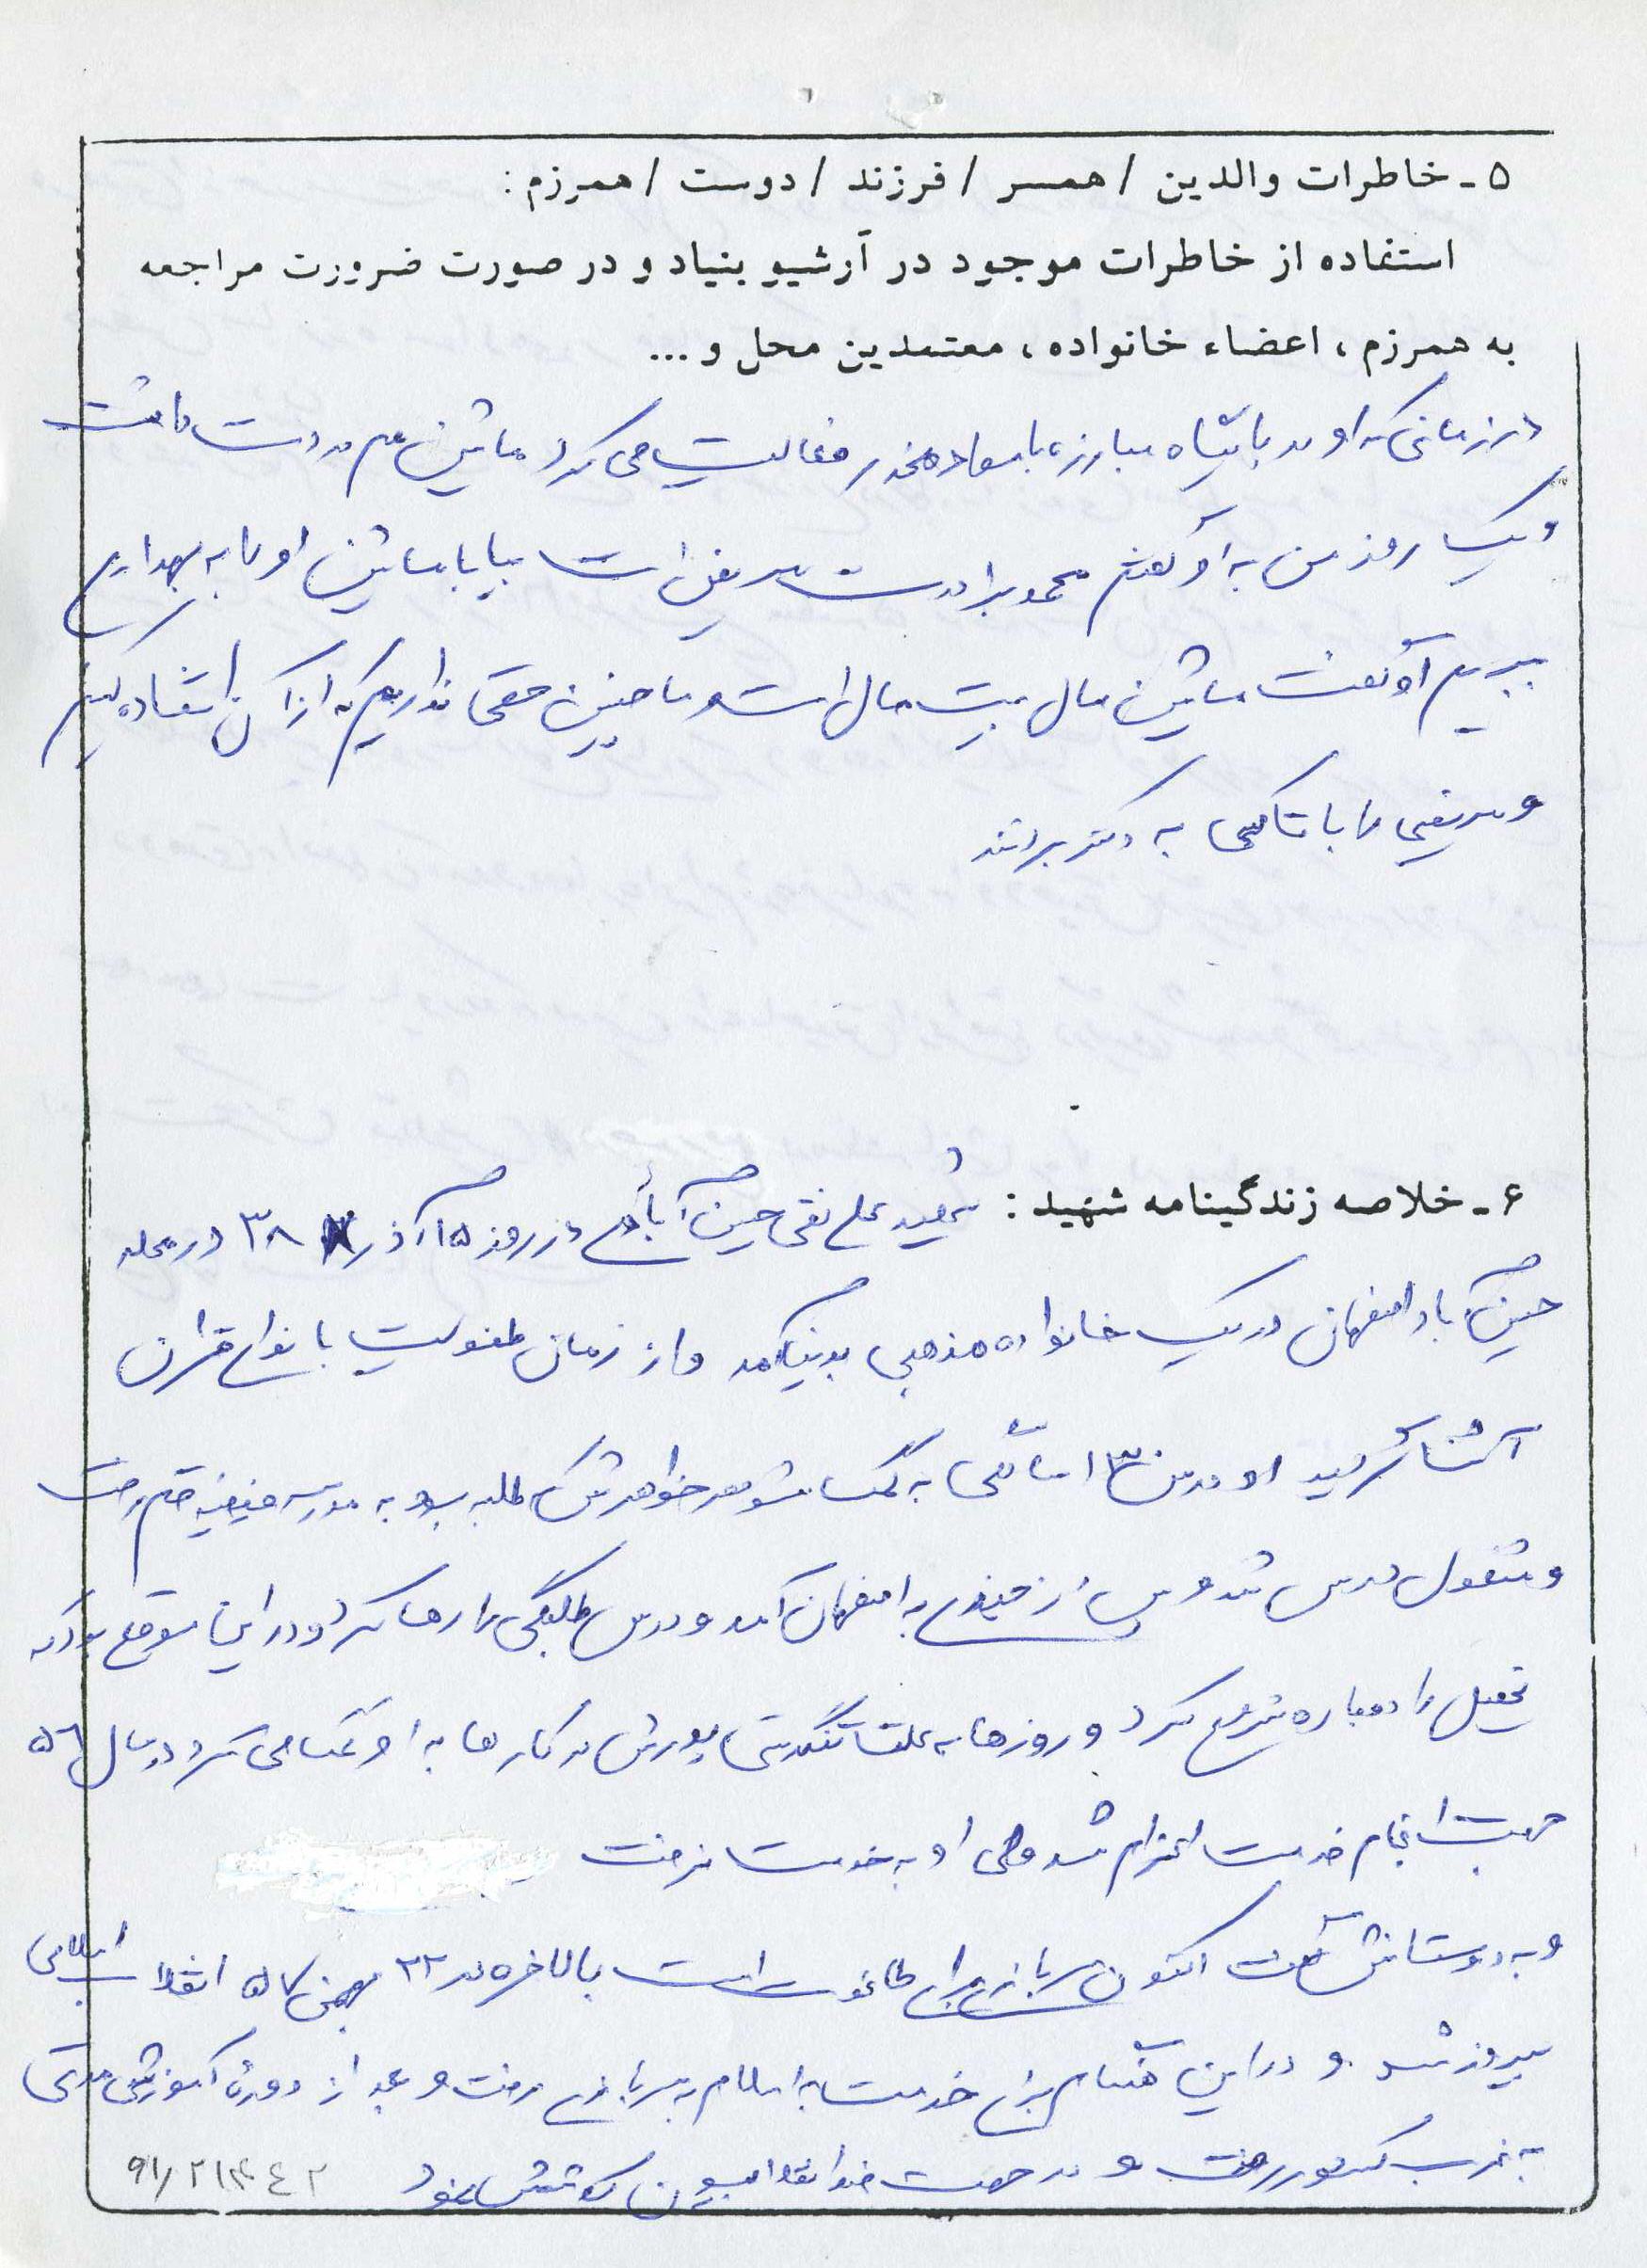 ۵ـ خاطرات والدین / همسر / فرزند / دوست / همرزم :
استفاده از خاطرات موجود در آرشیو بنیاد و در صورت ضرورت مراجعه
به همرزم ، اعضاء خانواده ، معتمدین محل و ...
در زمانی که او در پایگاه مبارزه با مواد مخدر فعالیت می کرد ماشین هم در دست داشت
و یک روز من به او گفتم محمد برادرت مریض است بیا با ماشین او را به بهداری
ببریم او گفت ماشین مال بیت مال است و ما چنین حقی نداریم که از آن استفاده کنیم
و مریض را با تاکسی به دکتر بردند
۶ـ خلاصه زندگینامه شهید : شهید علی نقی حسین آبادی در روز ۱۵ آذر ۳۸ در محله
حسین آباد اصفهان در یک خانواده مذهبی بدنیا آمد و از زمان طفولیت با نوای قرآن
آشنا گردید او در سن ۱۳ سالگی به کمک شوهر خواهرش که طلبه بود به مدرسه فیضیه قم رفت
و مشغول درس شد و پس از چندی به اصفهان آمد و درس طلبگی را رها کرد و در این موقع بود که
تحصیل را دوباره شروع کرد و روزها به علت تنگدستی پدرش در کارها به او کمک می کرد در سال ۵۶
جهت انجام خدمت اعزام شد ولی او به خدمت نرفت
و به دوستانش گفت اکنون سربازی برای طاغوت است بالاخره در ۲۲ بهمن ۵۷ انقلاب اسلامی
پیروز شد و در این هنگام برای خدمت به اسلام به سربازی رفت و بعد از دوره آموزشی
به غرب کشور رفت و در جهت ضد انقلابیون کوشش نمود
۹۱/۲۱۴۴۲